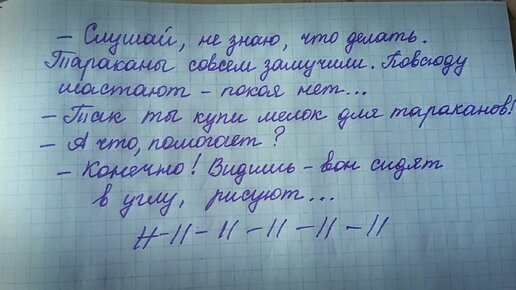 — Слушай, не знаю, что делать.
Тараканы совсем замучили. Повсюду
шастают – покоя нет...
– Так ты купи мелок для тараканов!
– А что, помогает?
– Конечно! Видишь – вон сидят
в углу, рисуют...
H – II – II – II – II – II